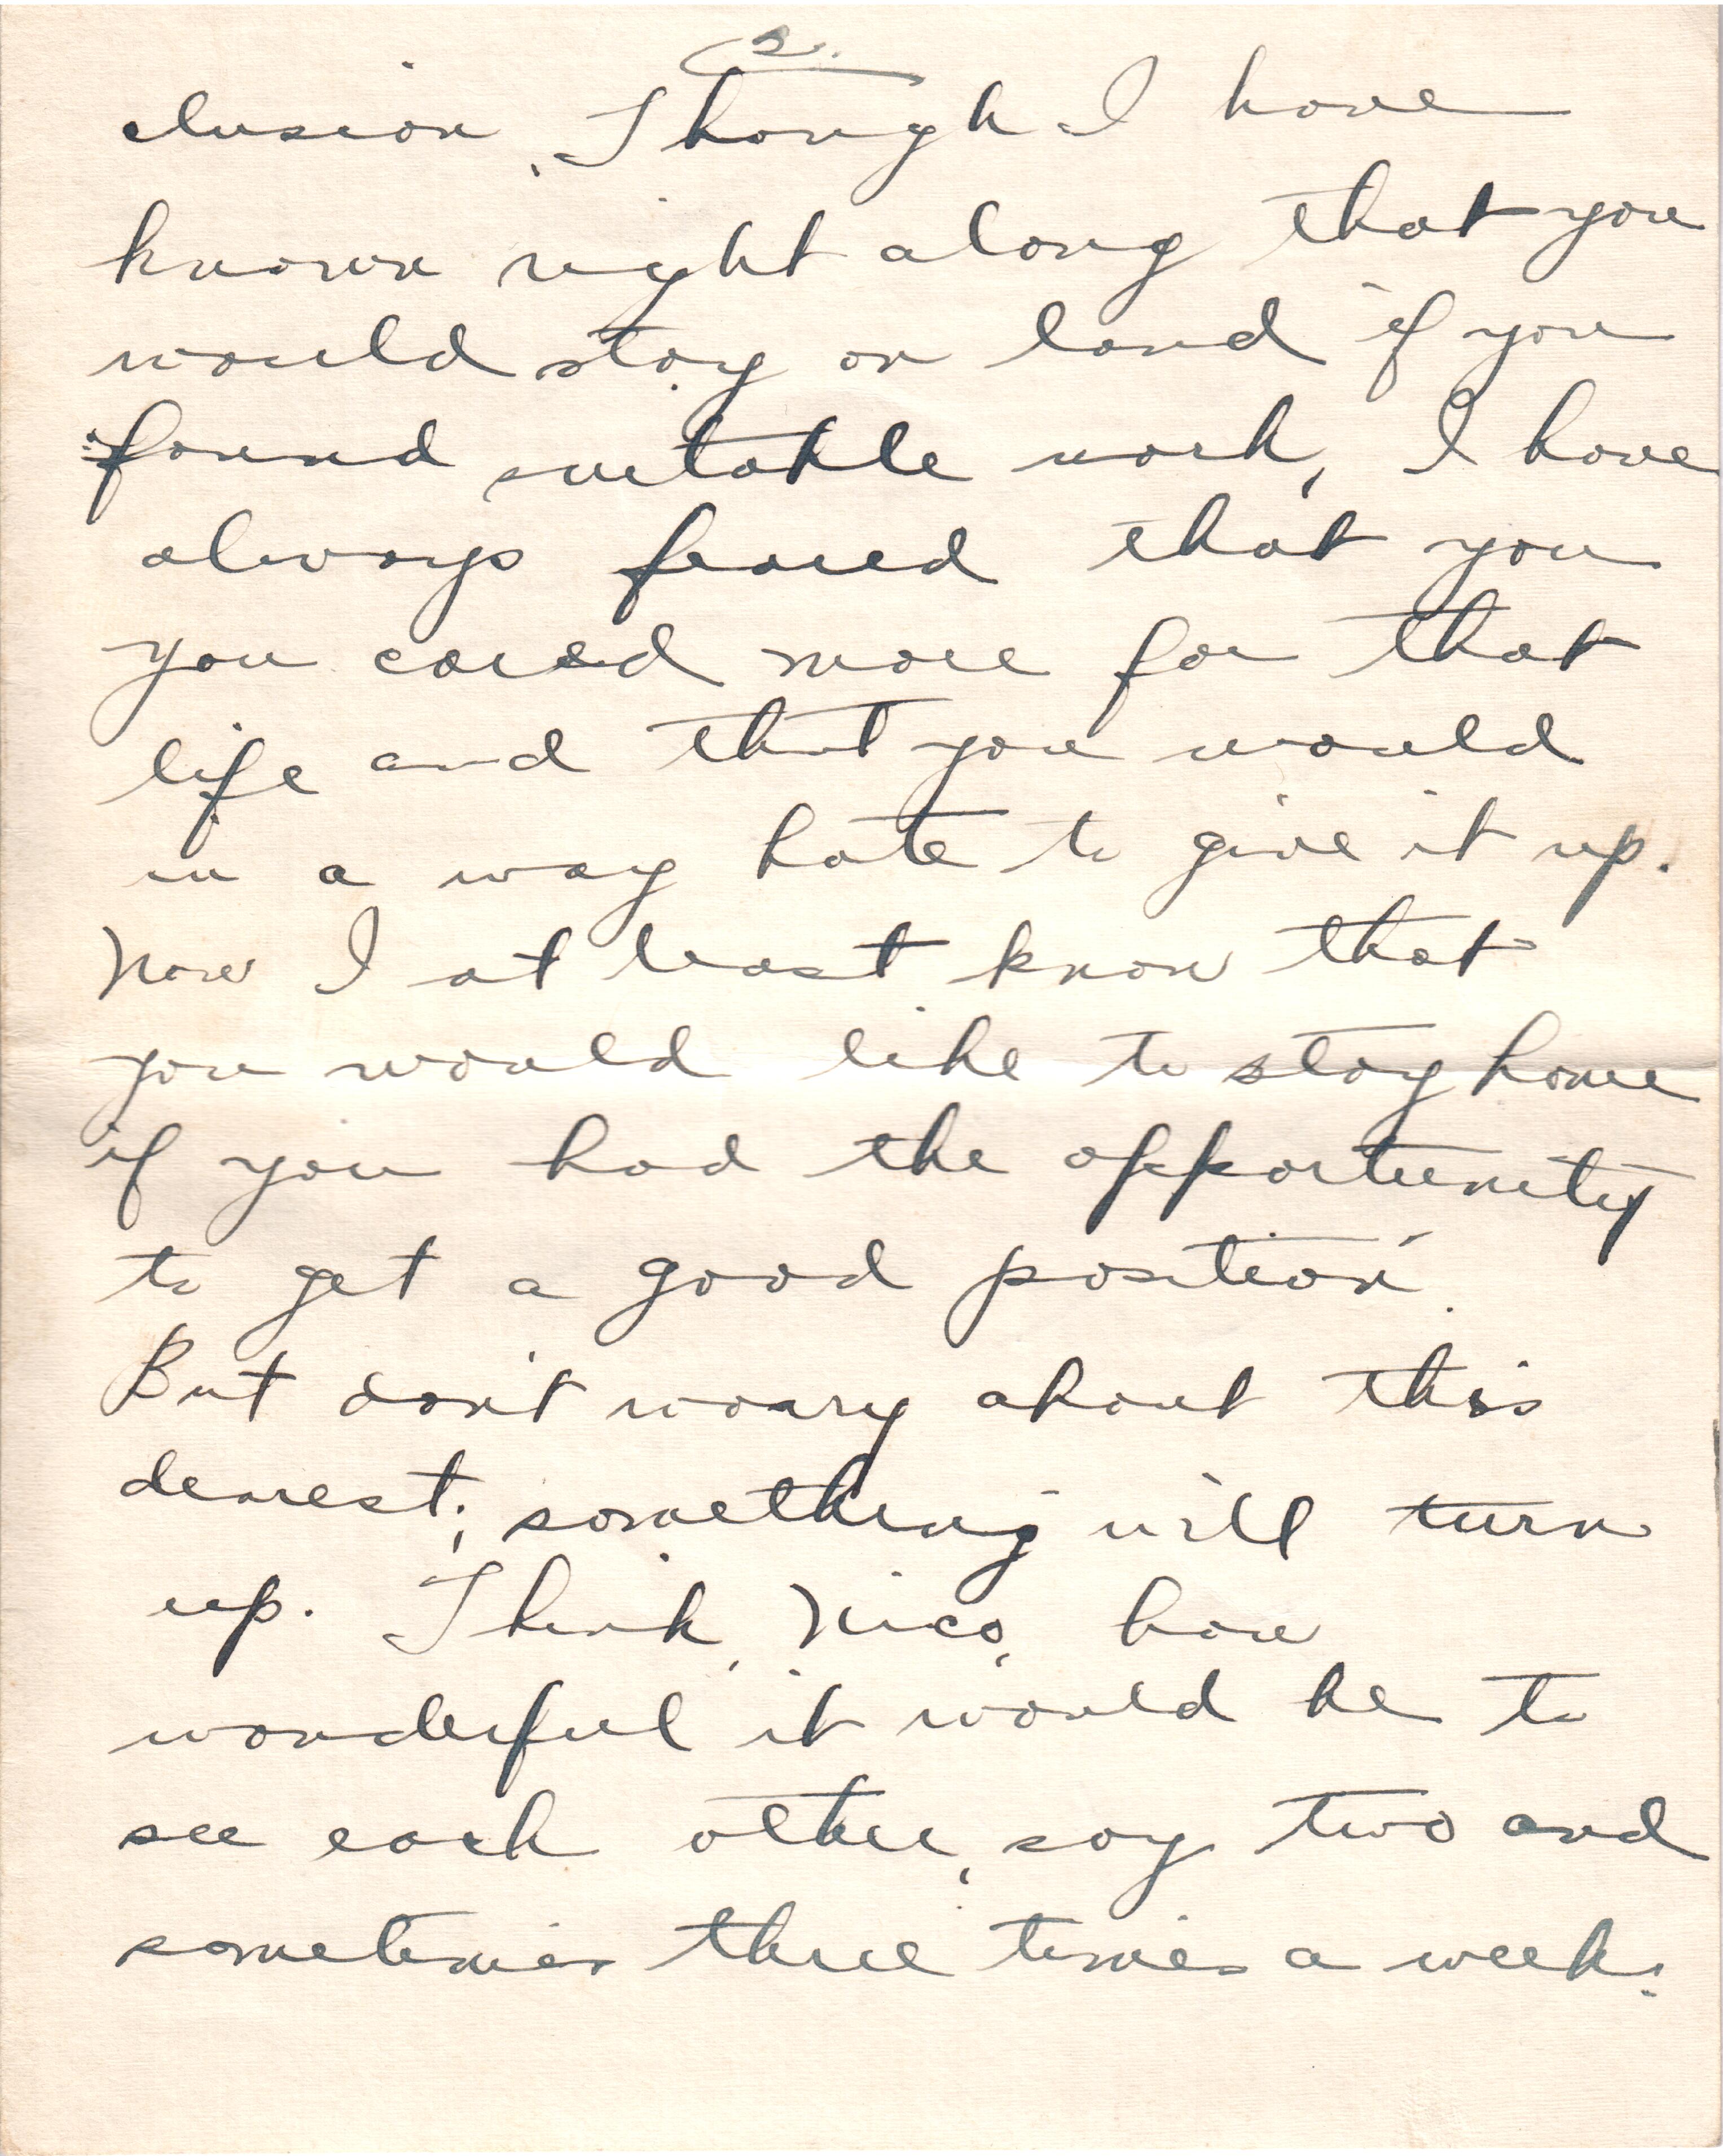 2.
clusion. Though I have
known right along that you
would stay on land if you
found suitable work, I have
always feared that you
you cared more for that
life and that you would
in a way hate to give it up.
Now I at least know that
you would like to stay home
if you had the opportunity
to get a good position.
But don't worry about this
dearest; something will turn
up. Think, Nico, how
wonderful it would be to
see each other, say two and
sometimes three times a week.